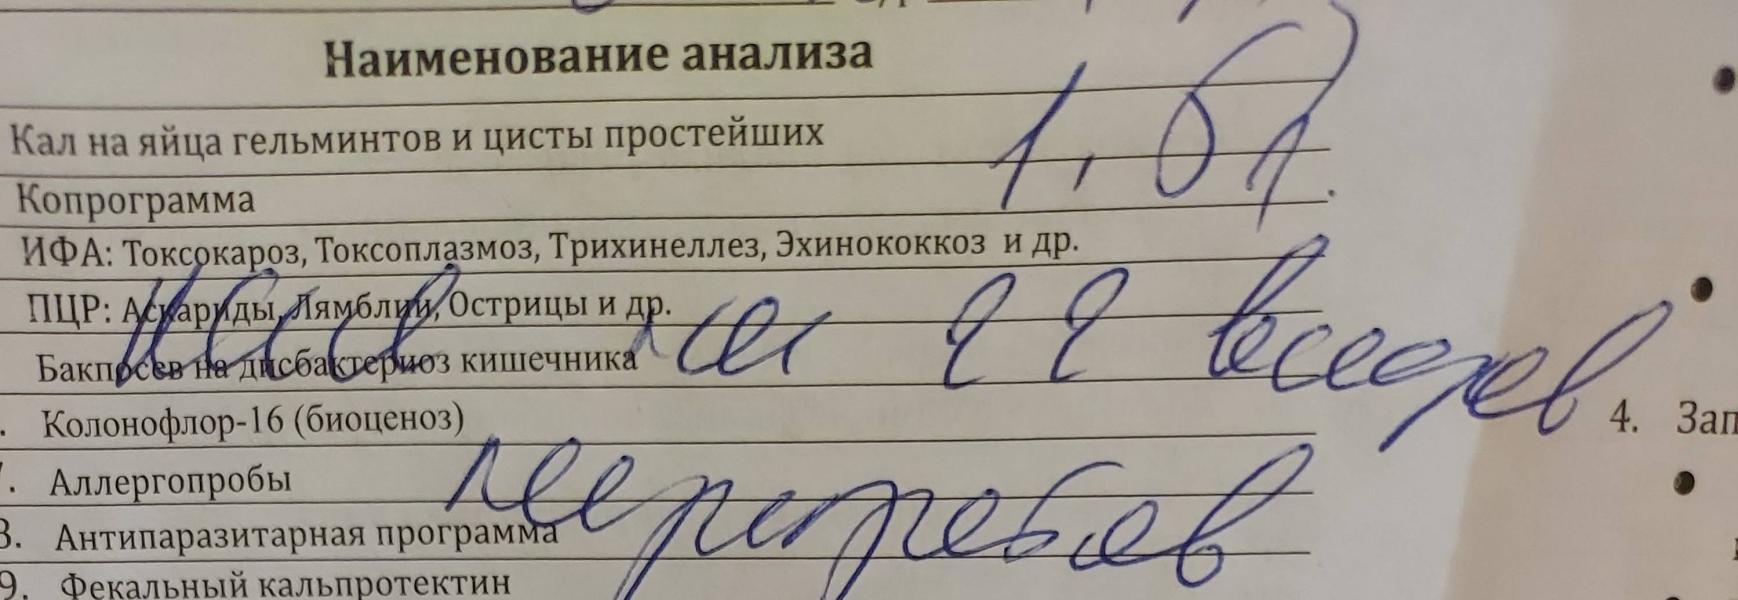 Наименование анализа
Кал на яйца гельминтов и цисты простейших
1,
Копрограмма
ИФА: Токсокароз, Токсоплазмоз, Трихинеллез, Эхинококкоз и др.
ПЦР: Аскариды, Лямблии, Острицы и др.
на 22
Бакпосев на дисбактериоз кишечника
. Колонофлор-16 (биоценоз)
4. Зап
7. Аллергопробы
8. Антипаразитарная программа
9. Фекальный кальпротектин